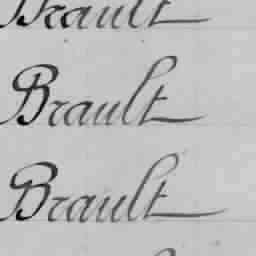 Brault
Brault
Brault